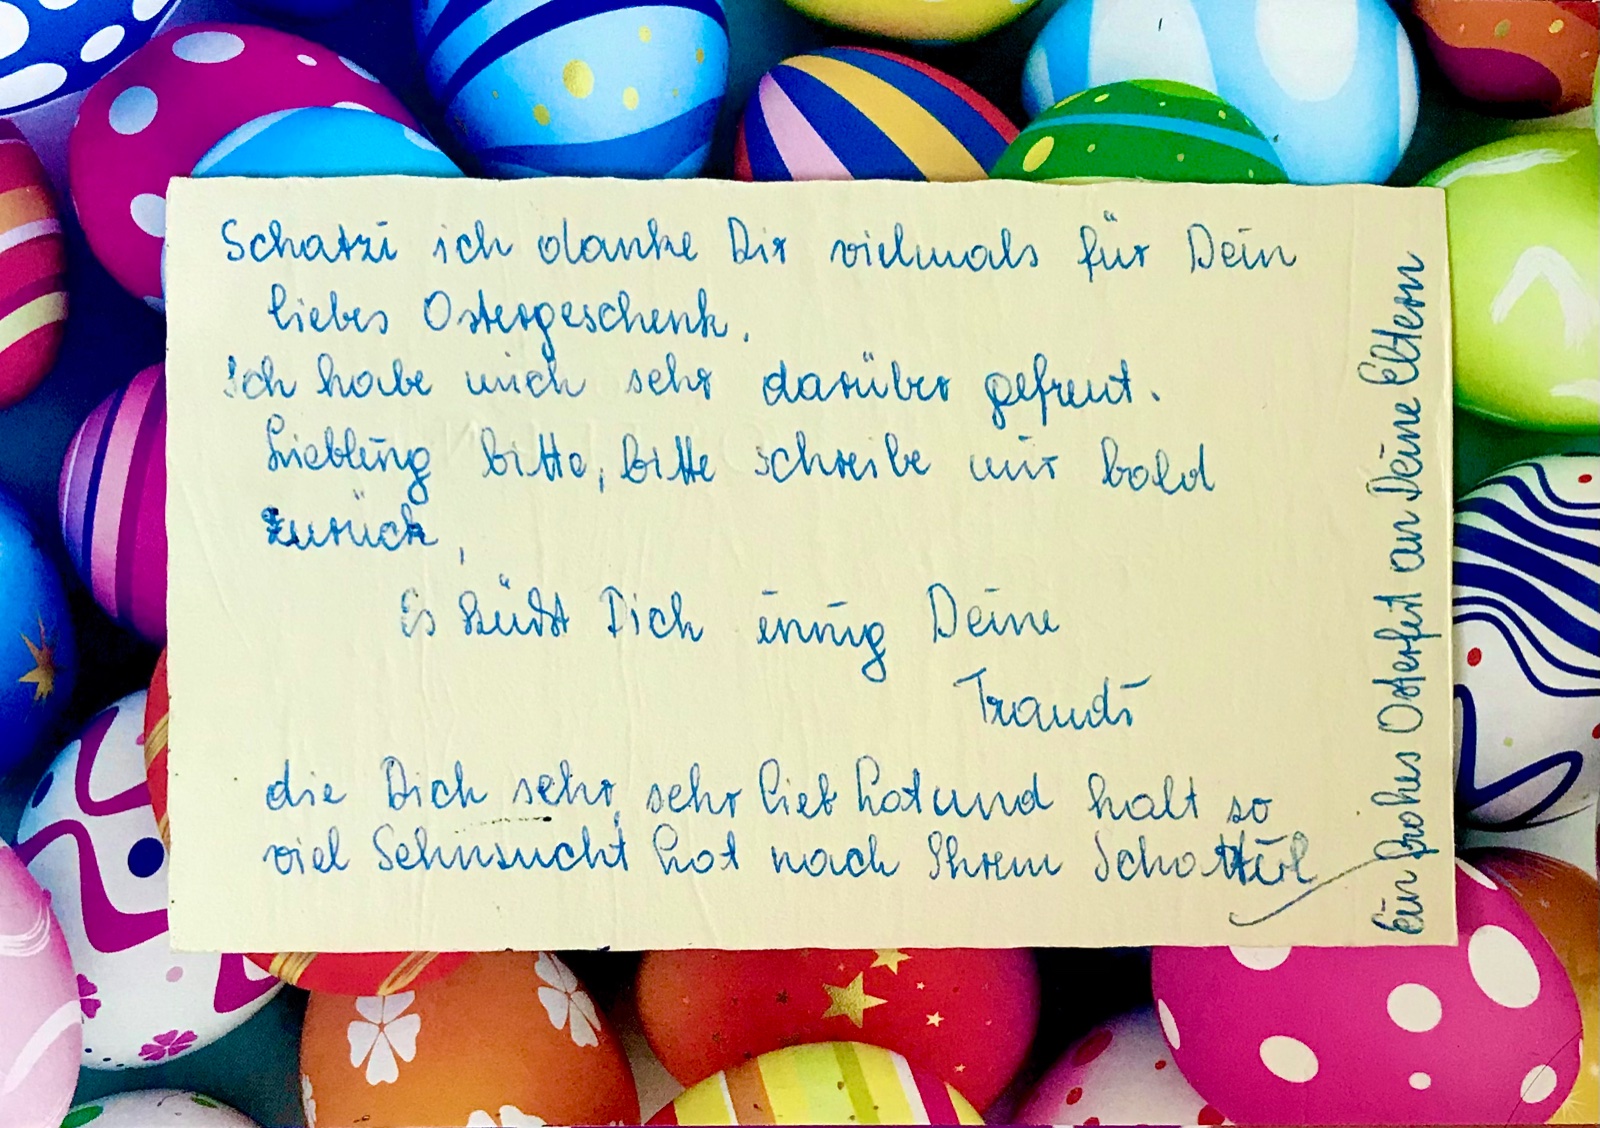 Schatzi ich danke Dir vielmals für Dein
liebes Ostergeschenk.
Ich habe mich sehr darüber gefreut.
Liebling bitte, bitte schreibe mir bald
zurück,
Es küßt Dich innig Deine
Traudi
die Dich sehr, sehr lieb hat und halt so
viel Sehnsucht hat nach Ihrem Schatterl
Ein frohes Osterfest an Deine Eltern